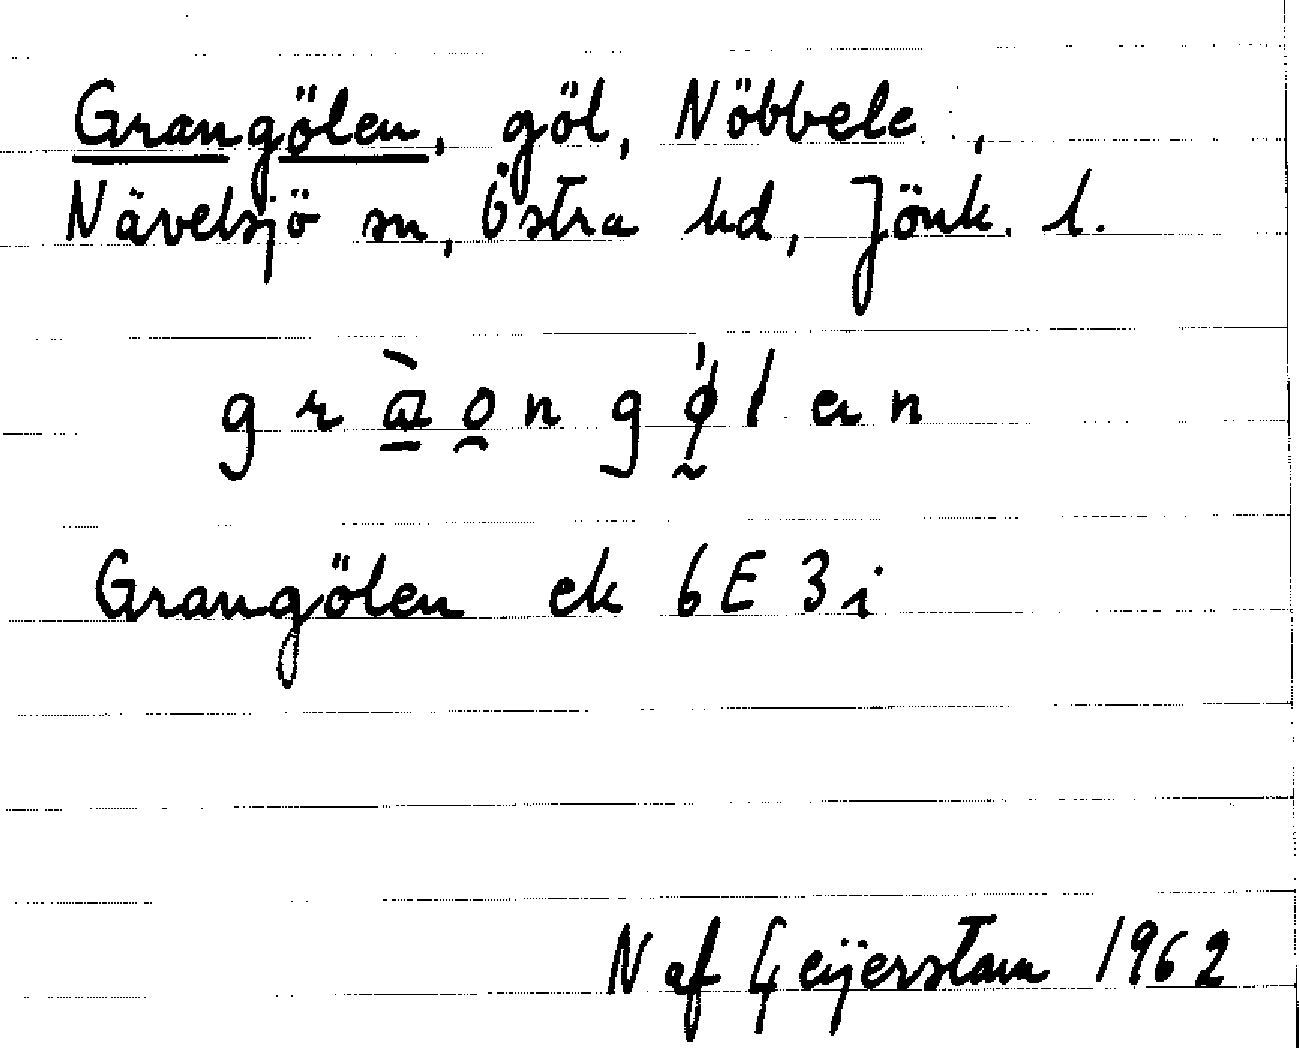 Grangölen, göl, Nöbbele,
Nävelsjö sn, Östra hd, Jönk. l.
Grangölen ek 6E 3i
N af Geijerstam 1962